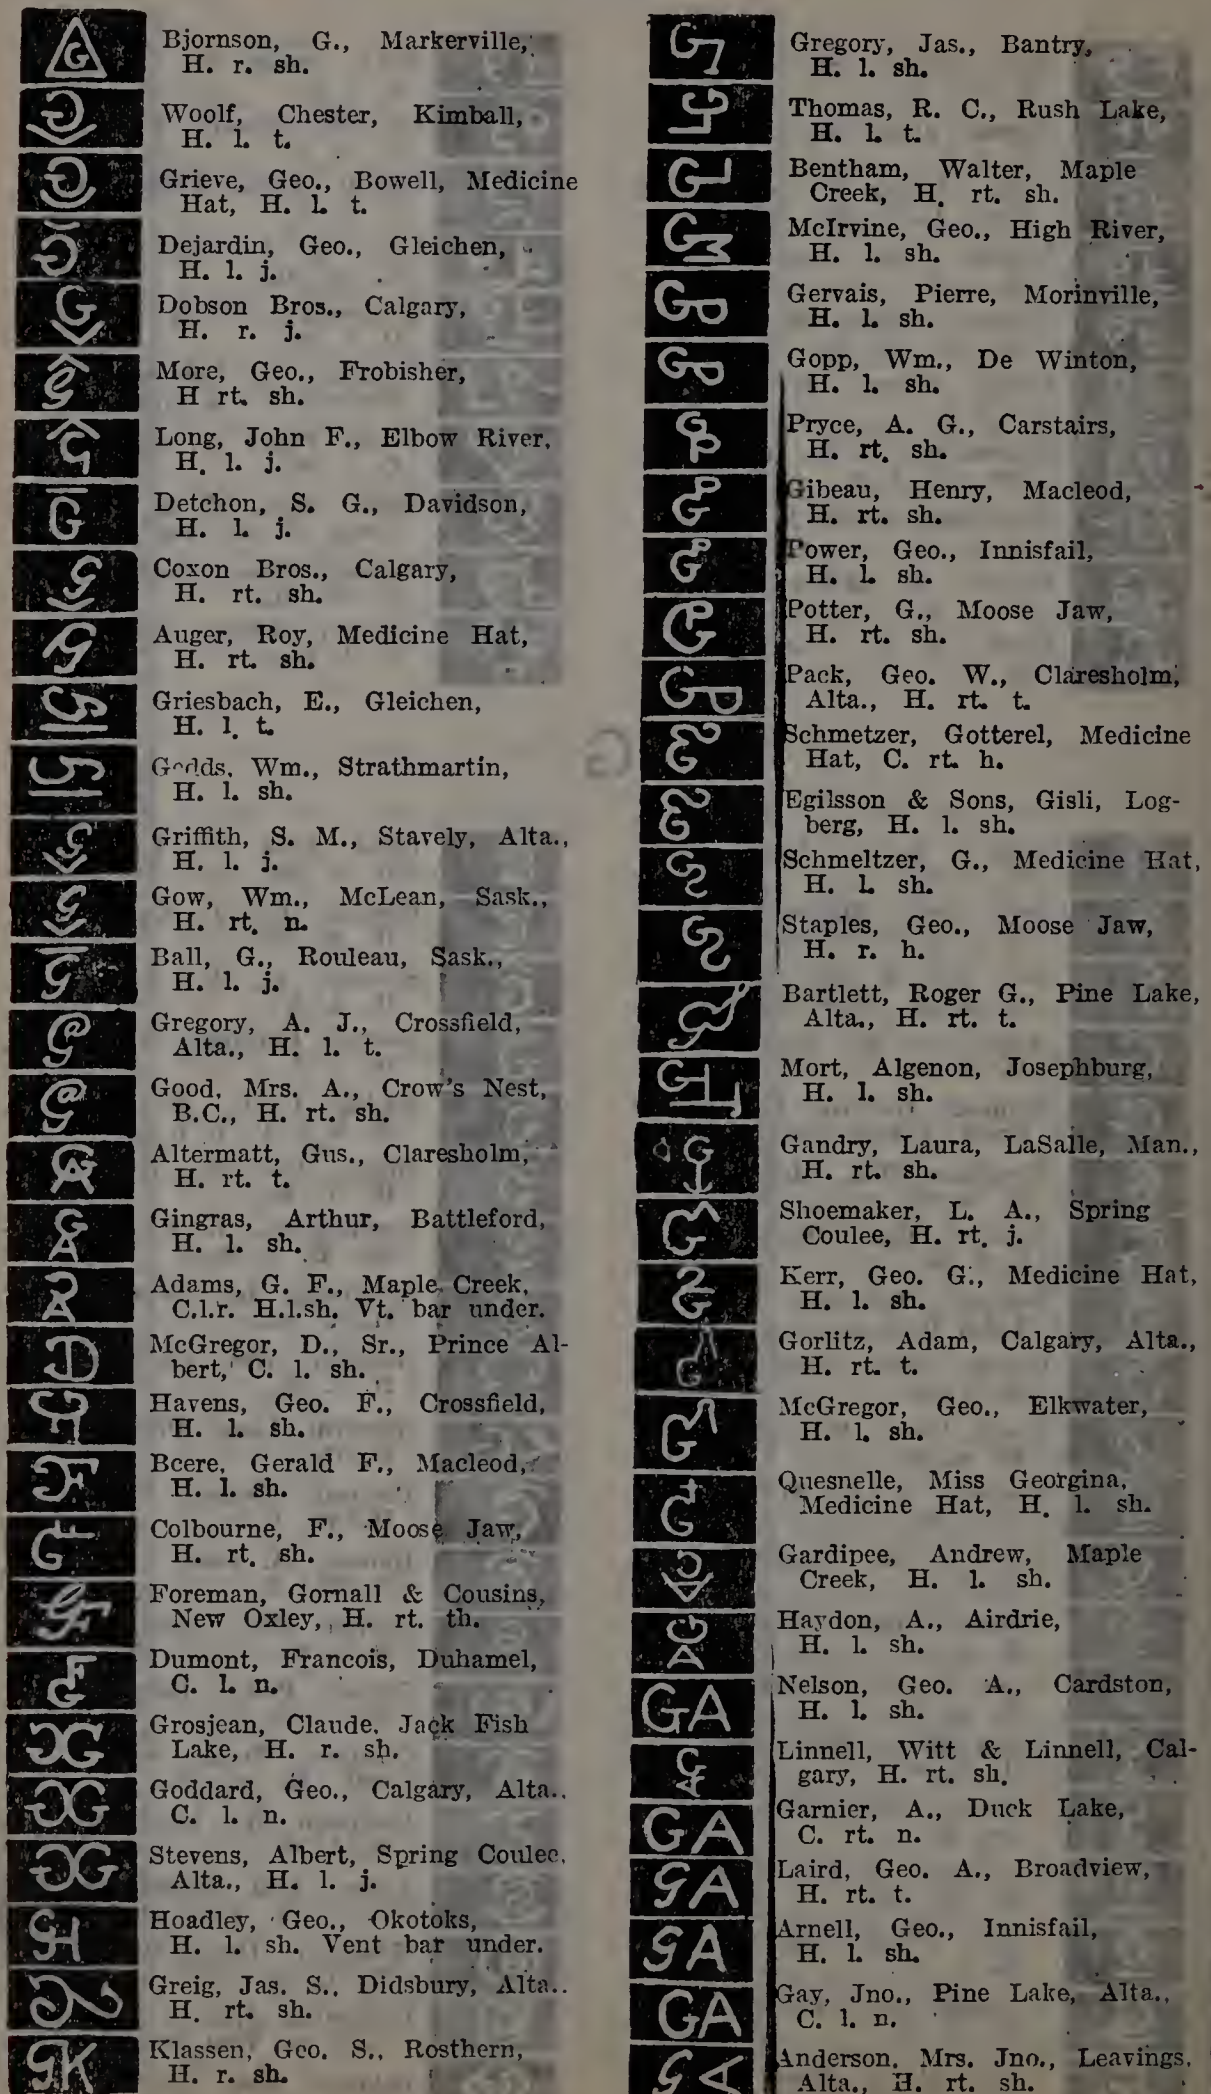 Bjornson, G., Markerville,
H. r. sh.
Woolf, Chester, Kimball,
H. l. t.
Grieve, Geo., Bowell, Medicine
Hat, H. l. t.
Dejardin, Geo., Gleichen,
H. l. j.
Dobson Bros., Calgary,
H. r. j.
More, Geo., Frobisher,
H rt. sh.
Long, John F., Elbow River,
H. l. j.
Detchon, S. G., Davidson,
H. l. j.
Coxon Bros., Calgary,
H. rt. sh.
Auger, Roy, Medicine Hat,
H. rt. sh.
Griesbach, E., Gleichen,
H. l. t.
Wm., Strathmartin,
H. l. sh.
Griffith, S. M., Stavely, Alta.,
H. l. j.
Gow, Wm., McLean, Sask.,
H. rt. n.
Ball, G., Rouleau, Sask.,
H. l. j.
Gregory, A. J., Crossfield,
Alta., H. l. t.
Good, Mrs. A., Crow's Nest,
B.C., H. rt. sh.
Altermatt, Gus., Claresholm,
H. rt. t.
Gingras, Arthur, Battleford,
H. l. sh.
Adams, G. F., Maple Creek,
C.l.r. H.l.sh. Vt. bar under.
McGregor, D., Sr., Prince Al-
bert, C. l. sh.
Havens, Geo. F., Crossfield,
H. l. sh.
Bcere, Gerald F., Macleod,
H. l. sh.
Colbourne, F., Moose Jaw,
H. rt. sh.
Foreman, Gornall & Cousins,
New Oxley, H. rt. th.
Dumont, Francois, Duhamel,
C. l. n.
Grosjean, Claude, Jack Fish
Lake, H. r. sh.
Goddard, Geo., Calgary, Alta..
C. l. n.
Stevens, Albert, Spring Coulee,
Alta., H. l. j.
Hoadley, Geo., Okotoks,
H. l. sh. Vent bar under.
Greig, Jas. S., Didsbury, Alta..
H. rt. sh.
Klassen, Geo. S., Rosthern,
H. r. sh.
Gregory, Jas., Bantry,
H. l. sh.
Thomas, R. C., Rush Lake,
H. l. t.
Bentham, Walter, Maple
Creek, H. rt. sh.
McIrvine, Geo., High River,
H. l. sh.
Gervais, Pierre, Morinville,
H. l. sh.
Gopp, Wm., De Winton,
H. l. sh.
Pryce, A. G., Carstairs,
H. rt. sh.
Gibeau, Henry, Macleod,
H. rt. sh.
Power, Geo., Innisfail,
H. l. sh.
Potter, G., Moose Jaw,
H. rt. sh.
Pack, Geo. W., Claresholm,
Alta., H. rt. t.
Schmetzer, Gotterel, Medicine
Hat, C. rt. h.
Egilsson & Sons, Gisli, Log-
berg, H. l. sh.
Schmeltzer, G., Medicine Hat,
H. l. sh.
Staples, Geo., Moose Jaw,
H. r. h.
Bartlett, Roger G., Pine Lake,
Alta., H. rt. t.
Mort, Algenon, Josephburg,
H. l. sh.
Gandry, Laura, LaSalle, Man.,
H. rt. sh.
Shoemaker, L. A., Spring
Coulee, H. rt. j.
Kerr, Geo. G., Medicine Hat,
H. l. sh.
Gorlitz, Adam, Calgary, Alta.,
H. rt. t.
McGregor, Geo., Elkwater,
H. l. sh.
Quesnelle, Miss Georgina,
Medicine Hat, H. l. sh.
Gardipee, Andrew, Maple
Creek, H. l. sh.
Haydon, A., Airdrie,
H. l. sh.
Nelson, Geo. A., Cardston,
H. l. sh.
Linnell, Witt & Linnell, Cal-
gary, H. rt. sh.
Garnier, A., Duck Lake,
C. rt. n.
Laird, Geo. A., Broadview,
H. rt. t.
Arnell, Geo., Innisfail,
H. l. sh.
Gay, Jno., Pine Lake, Alta.,
C. l. n.
Anderson, Mrs. Jno., Leavings,
Alta., H. rt. sh.